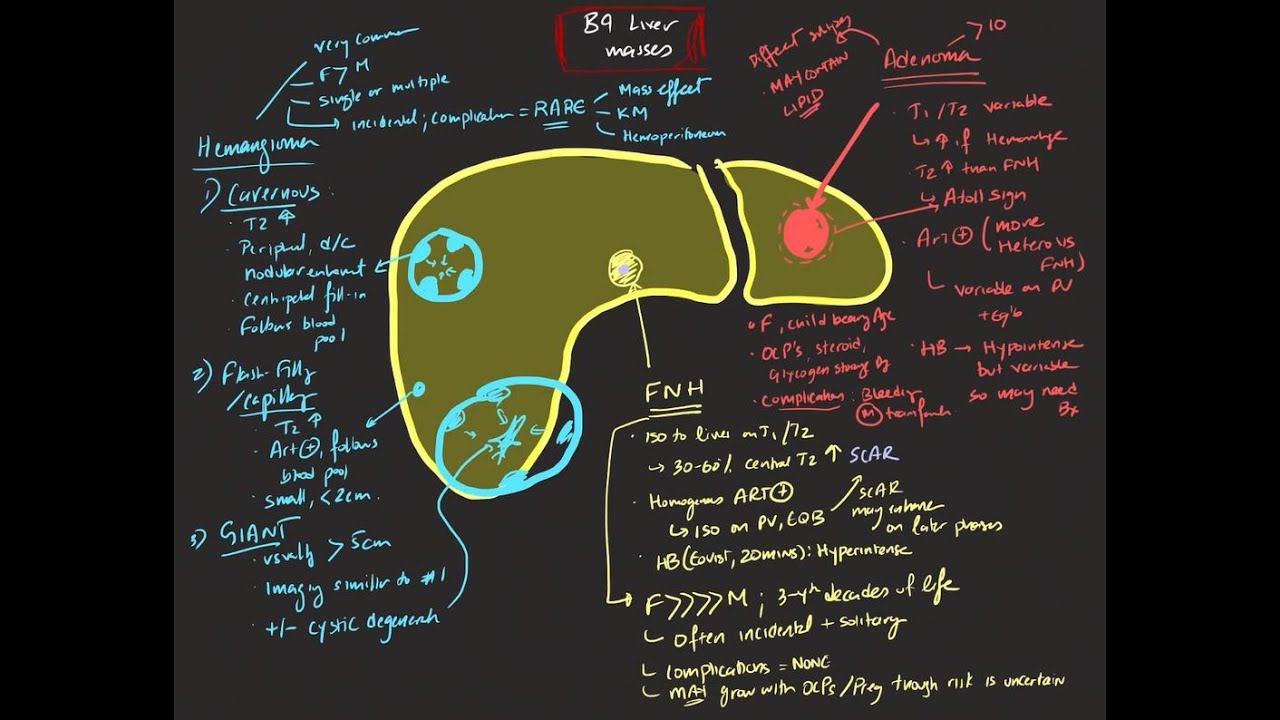 B9 Liver
masses
very common
F > M
single or multiple
incidental; complication = RARE
Mass effect
KM
Hemoperitoneum
Hemangioma
1) Cavernous
T2 ↑
Peripheral, d/c
nodular enhancement
Centripetal fill-in
Follows blood
pool
2) Flash-filling
/capillary
T2 ↑
Art ⊕, follows
blood pool
small, <2cm
3) GIANT
usually > 5cm
Imaging similar to #1
+/- cystic degenerati
FNH
Iso to liver on T1/T2
↳ 30-60% central T2 ↑ SCAR
Homogenous ART ⊕
↳ ISO on PV, EQB
SCAR
may enhance
on later phases
HB (Eovist, 20mins): Hyperintense
F>>>>M ; 3-4th decades of life
Often incidental + solitary
Complications = NONE
MAY grow with OCPs/Preg though risk is uncertain
Adenoma
>10
Different subtypes
MAY CONTAIN
LIPID
T1/T2 variable
↳ ↑ if Hemorrhage
T2 ↑ than FNH
↳ Atoll sign
Art ⊕ (more
Hetero vs
FNH)
variable on PV
+ Eqb
HB → Hypointense
but variable
so may need
Bx
F, child bearing Age
OCP's, steroid,
Glycogen storage Dz
Complications: Bleeding
Ⓜ transform